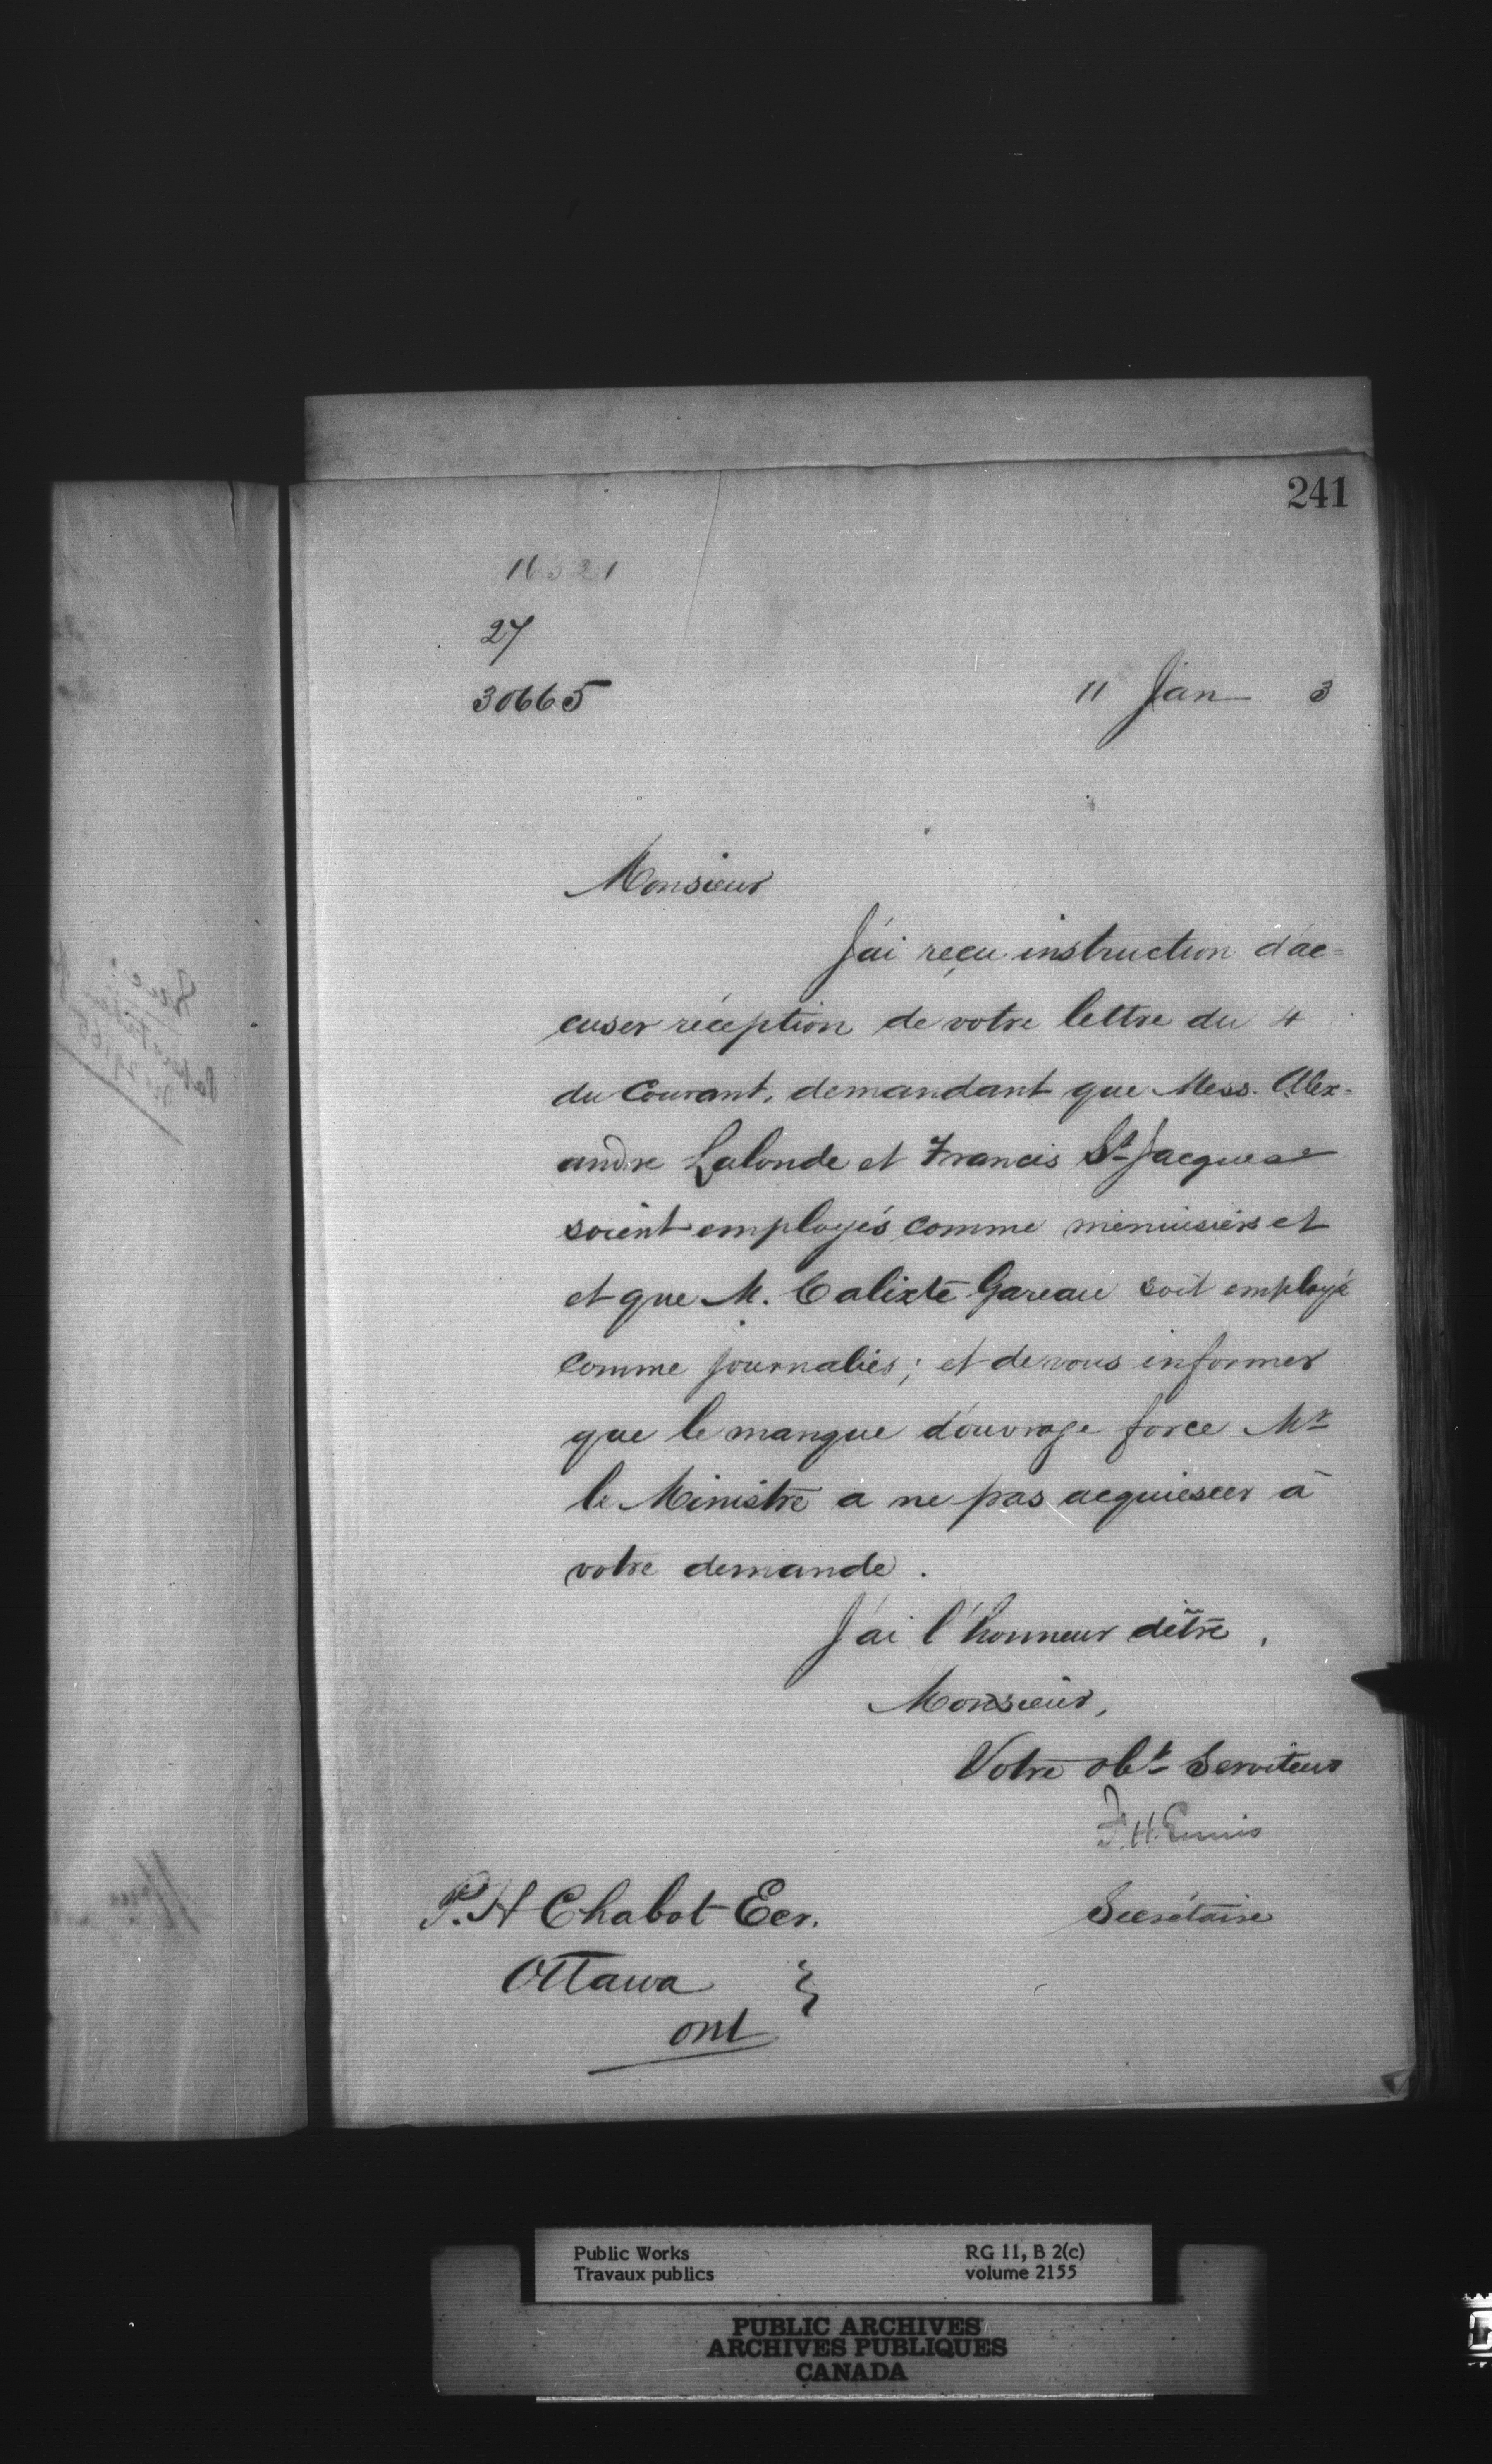 241
16321
27
30665
11 Jan 3
Monsieur
J'ai reçu instruction d'ac=
cuser réception de votre lettre du 4
du Courant, demandant que Mess. Alex=
andre Lalonde et Francis St Jacques
soient employés comme menuisiers et
et que M. Calixte Gareau soit employé
comme journalier; et de vous informer
que le manque d'ouvrage force Mr
le Ministre a ne pas acquiescer à
votre demande.
J'ai l'honneur d'être,
Monsieur,
Votre obt Serviteur
F. H. Ennis
Secrétaire
P. H Chabot Ecr.
Ottawa
Ont
Public Works
Travaux publics
RG 11, B 2(c)
volume 2155
PUBLIC ARCHIVES
ARCHIVES PUBLIQUES
CANADA